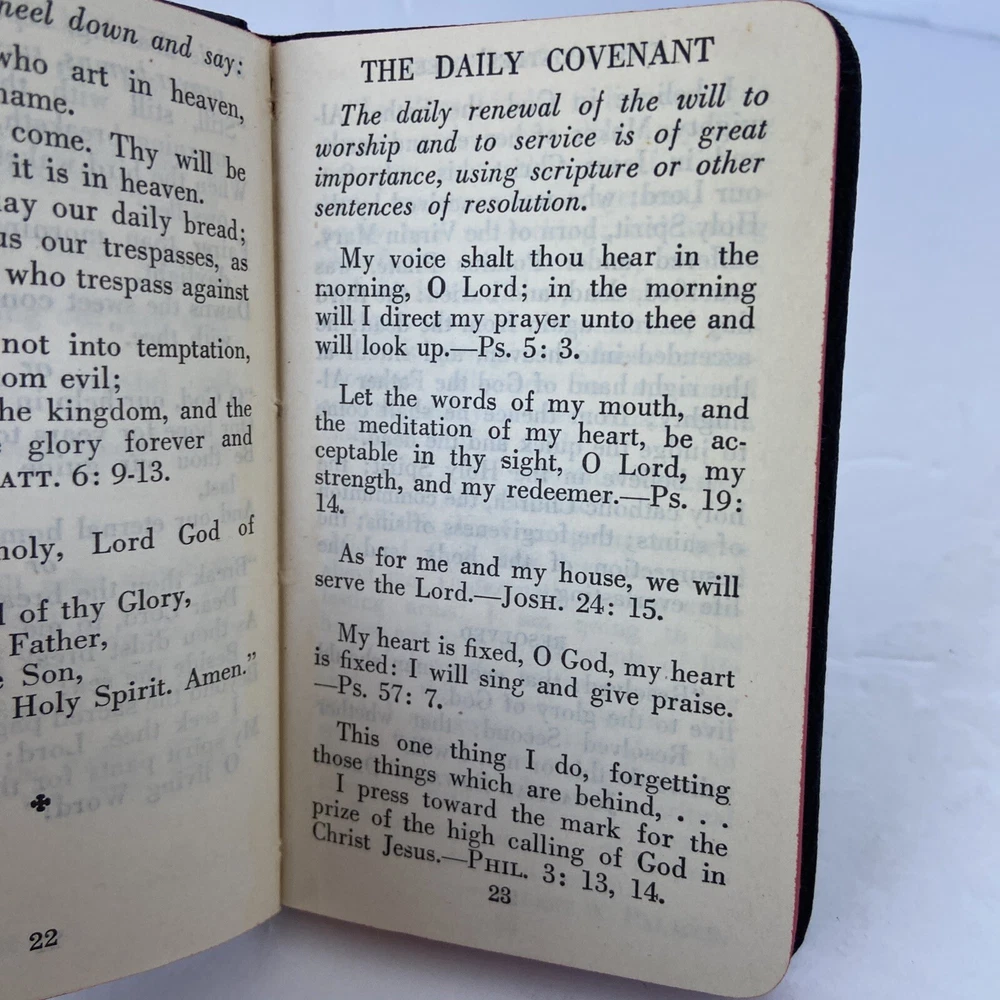 neel down and say:
who art in heaven,
name.
come. Thy will be
it is in heaven.
ay our daily bread;
us our trespasses, as
who trespass against
not into temptation,
om evil;
he kingdom, and the
glory forever and
ATT. 6: 9-13.
holy, Lord God of
of thy Glory,
Father,
Son,
Holy Spirit. Amen."
22
THE DAILY COVENANT
The daily renewal of the will to
worship and to service is of great
importance, using scripture or other
sentences of resolution.
My voice shalt thou hear in the
morning, O Lord; in the morning
will I direct my prayer unto thee and
will look up.—Ps. 5: 3.
Let the words of my mouth, and
the meditation of my heart, be ac-
ceptable in thy sight, O Lord, my
strength, and my redeemer.—Ps. 19:
14.
As for me and my house, we will
serve the Lord.—JOSH. 24: 15.
My heart is fixed, O God, my heart
is fixed: I will sing and give praise.
—Ps. 57: 7.
This one thing I do, forgetting
those things which are behind, . . .
I press toward the mark for the
prize of the high calling of God in
Christ Jesus.—PHIL. 3: 13, 14.
23